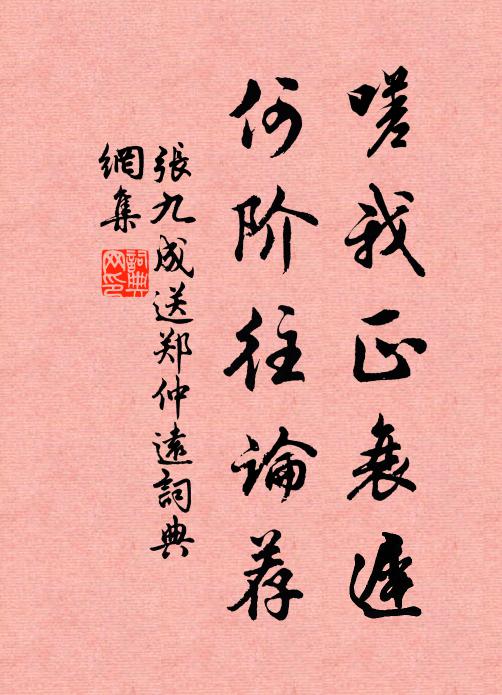 嗟我正衰遲
何阶往論荐
張九成送郑仲遠詞典
網集
詞典
网印